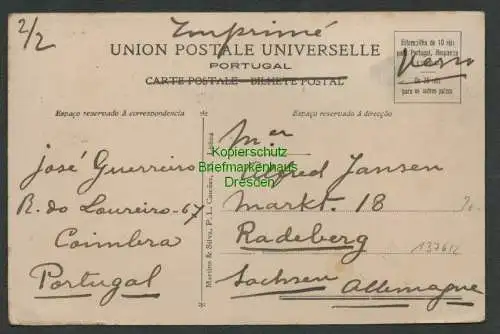 2/2
Imprimé
UNION POSTALE UNIVERSELLE
PORTUGAL
CARTE POSTALE - BILHETE POSTAL
Estampilha de 10 réis
para Portugal, Hespanha
De 20 réis
para os outros paizes
Espaço reservado á correspondencia
Espaço reservado á direcção
José Guerreiro
R. do Loureiro-67
Coimbra
Portugal
Martins & Silva, P. L. Camões, Lisboa
Kopierschutz
Briefmarkenhaus
Dresden
Mer
Alfred Jansen
Markt. 18
Radeberg
13761z
Sachsen Allemagne